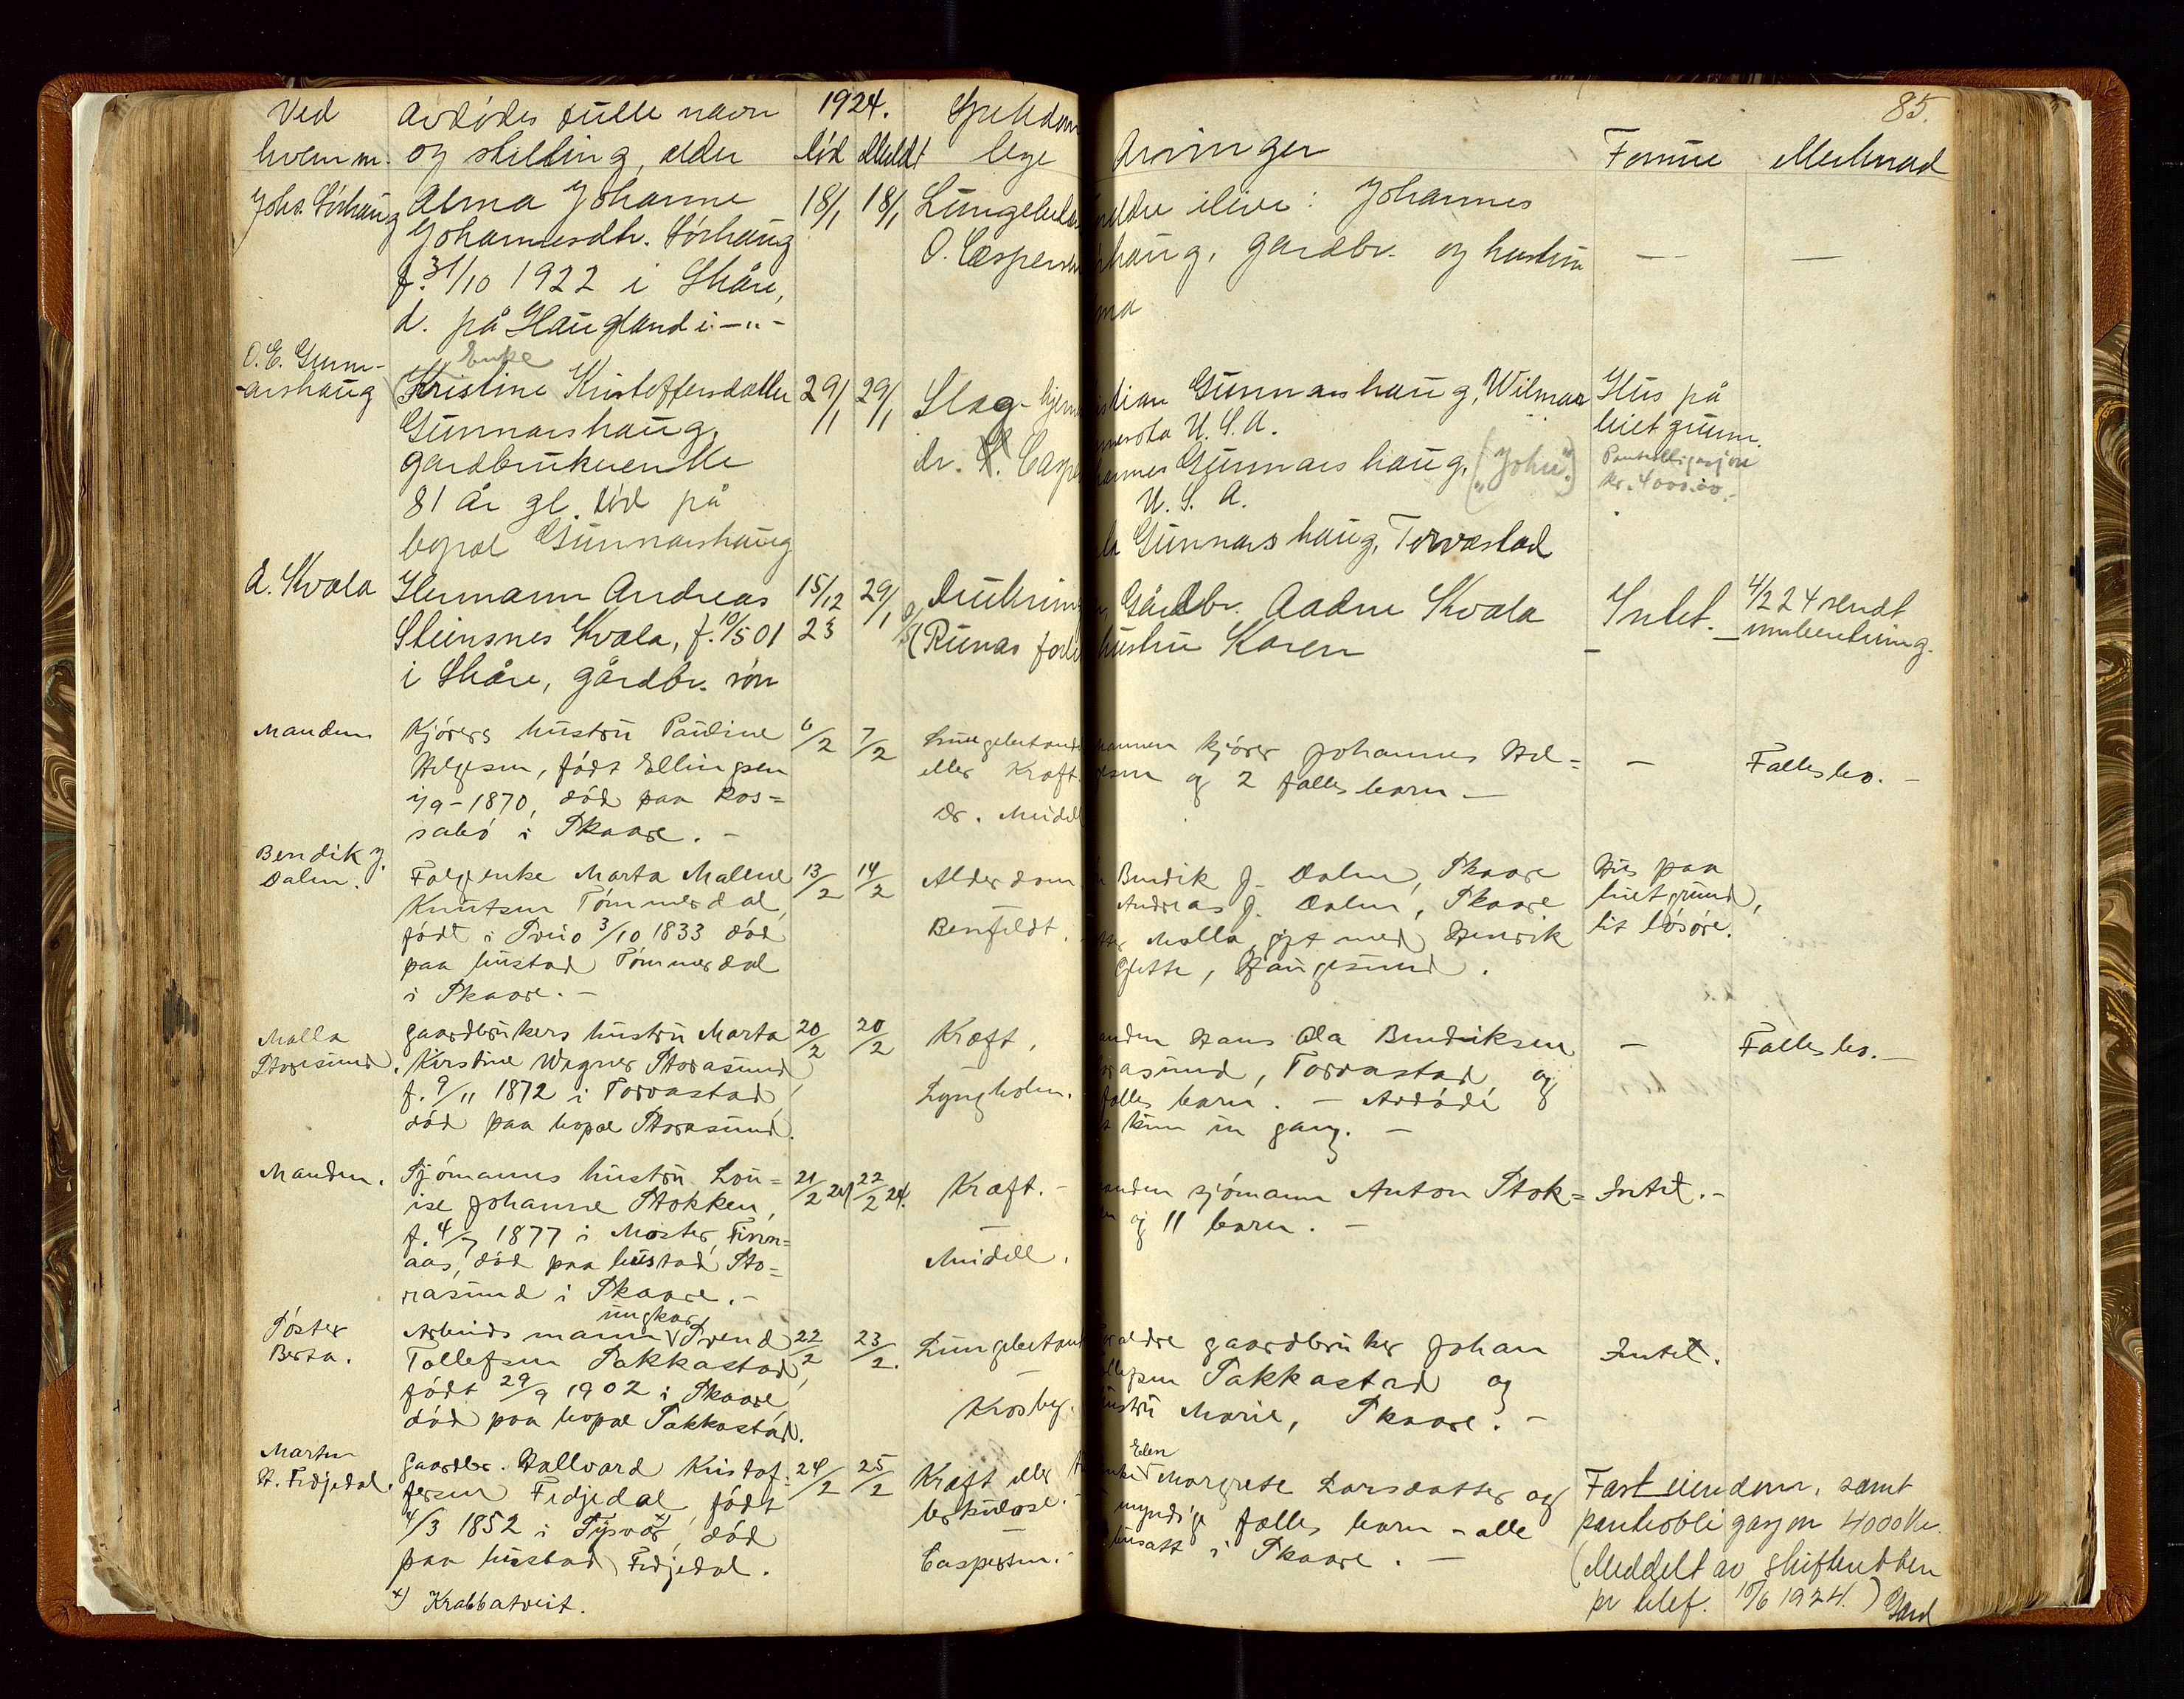 Ved
hvem m.
Avdødes fulle navn
og stilling, alder
1924.
Død
Meldt
Sykdom
lege
Arvinger
Formue
Merknad
85.
Johs. Sørhaug
Alma Johanne
Johannesdtr. Sørhaug
f. 31/10 1922 i Skåre,
d. på Haugland i -"-
18/1
18/1
Lungebetæn
O. Caspersen
eldre ilive: Johannes
haug, gardbr. og hustru
ma
—
—
O. E. Gunn-
arshaug
Enke
Kristine Kristoffersdatter
Gunnarshaug,
gardbrukerenke
81 år gl. død på
bopæl Gunnarshaug
29/1
29/1
Slag - hjerne
dr. Casper
istian Gunnarshaug, Wilmar
nnesota U. S. A.
hannes Gunnarshaug, ("John")
U. S. A.
la Gunnarshaug, Torvastad
Hus på
leiet grunn.
Pantobligasjon
kr. 4000.00.-
A. Kvala
Hermann Andreas
Steinsnes Kvala, f. 10/5 01
i Skåre, gårdbr. søn
15/12
23
29/1
Drukning
(Runas forli
Gårdbr. Aadne Kvala
hustru Karen
Intet. —
4/2 24 sendt
innberetning.
Manden
Kjørers hustru Pauline
Helgesen, født Ellingsen
1/9-1870, død paa Ros=
sabø i Skaare. -
6/2
7/2
Lungebetænde
eller Kræft.
Dr. Midell
mannen kjører Johannes Hel=
gesen og 2 fælles barn -
—
Fælles bo. -
Bendik J.
Dalen.
Følgenke Marta Malene
Knutsen Tømmerdal,
født i Sveio 3/10 1833 død
paa bustad Tømmerdal
i Skaare. -
13/2
14/2
Alderdom.
Benfeldt.
Bendik J. Dalen, Skaare
Andreas J. Dalen, Skaare
Malla, gift med Henrik
Gjette, Haugesund.
Hus paa
leiet grund,
lit løsøre.
Malla
Storesund.
gaardbrukers hustru Marta
Kirstine Wagner Storasund
f. 9/11 1872 i Torvastad,
død paa bopæl Storasund.
20/2
20/2
Kræft.
Lyngholm.
anden Hans Ola Bendiksen
orasund, Torvastad, og
fælles barn. - Avdøde
kun en gang. -
—
Fælles bo. -
Manden.
Sjømanns hustru Lou=
ise Johanne Stokken,
f. 4/7 1877 i Moster, Finn=
aas, død paa bustad Sto=
rasund i Skaare. -
21/2 24
22/2 24.
Kræft. -
Midell.
anden sjømann Anton Stok=
en og 11 barn. -
Intet. -
Søster
Berta.
ungkar
Arbeidsmann Svend
Tollefsen Sakkastad,
født 29/9 1902 i Skaare,
død paa bopæl Sakkastad.
22/2
23/2.
Lungebetænd
Kosberg.
oreldre gaardbruker Johan
ollefsen Sakkastad og
hustru Marie, Skaare. -
Intet.
Marten
H. Fidjedal.
gaardbr. Hallvard Kristof=
fersen Fidjedal, født
4/3 1852 i Tysvær x), død
paa bustad Fidjedal.
x) Krabbatveit.
24/2
25/2
Kræft eller
berkulose. -
Caspersen. -
Elen
enke Margrete Larsdatter og
myndige fælles barn - alle
busatt i Skaare. -
Fast eiendom, samt
pantobligasjon 4000 kr.
(Meddelt av skifteretten
pr telef. 10/6 1924.) Gard